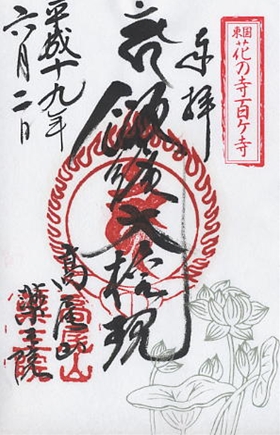 東国
花の寺百ケ寺
奉拝
飯縄大権現
高尾山
薬王院
平成十九年
六月二日
高尾山
薬王院